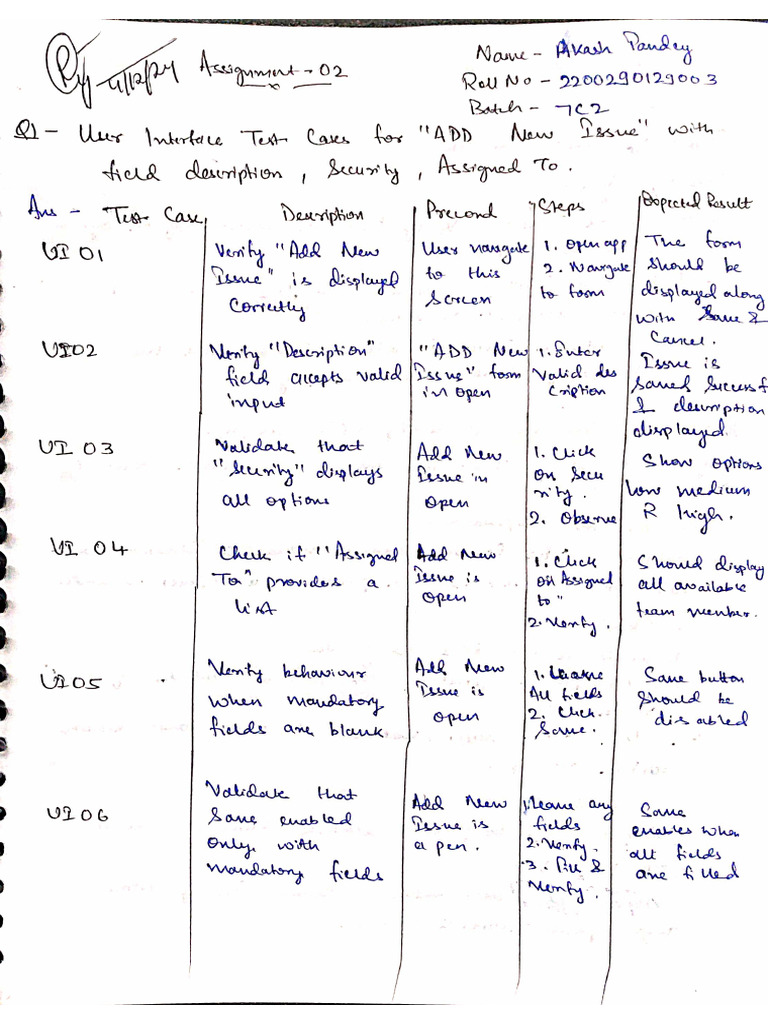 4/12/24 Assignment - 02
Name - Akash Pandey
Roll No - 2200290129003
Batch - 7C2
Q1 - User Interface Test Cases for "ADD New Issue" with
field description, Security, Assigned To.
Ans - Test Case Description Precond Steps Expected Result
UI 01
Verify "Add New
Issue" is displayed
Correctly
User navigate
to this
Screen
1. Open app
2. Navigate
to form
The form
should be
displayed along
with Save &
Cancel.
UI02
Verify "Description"
field accepts valid
input
"ADD New
Issue" form
in open
1. Enter
Valid des
cription
Issue is
saved successf
& description
displayed
UI 03
Validate that
"Security" displays
all options
Add New
Issue in
open
1. Click
on Secu
rity.
2. Observe
Show options
low medium
& high.
UI 04
Check if "Assigned
To" provides a
list
Add New
Issue is
open
1. Click
on Assigned
to"
2. Verify.
Should display
all available
team member.
UI05
Verify behaviour
when mandatory
fields are blank
Add New
Issue is
open
1. Leave
All fields
2. Click
Save.
Save button
should be
disabled
UI06
Validate that
Save enabled
only with
mandatory fields
Add New
Issue is
open.
1. leave any
fields
2. Verify.
3. Fill &
Verify.
Save
enables when
all fields
are filled